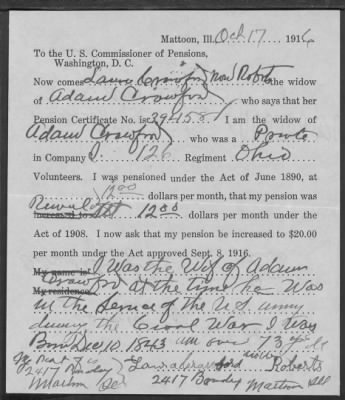 Mattoon, Ill. Oct 17 1916
To the U. S. Commissioner of Pensions,
Washington, D. C.
Now comes Laura Crawford now Roberts the widow
of Adam Crawford who says that her
Pension Certificate No. is I am the widow of
Adam Crawford who was a Private
in Company I. 126 Regiment Ohio
Volunteers. I was pensioned under the Act of June 1890, at
12.00 dollars per month, that my pension was
increased to 12.00 dollars per month under the
Act of 1908. I now ask that my pension be increased to $20.00
per month under the Act approved Sept. 8, 1916.
My name is I Was the Wif of Adam
My residence Crawford at the time he Was
in the service of the U.S. army
during the Civel War I Was
Born Dec 10. 1843 am over 73 
Laura Crawford now Roberts
2417 
2417 Mattoon Ill